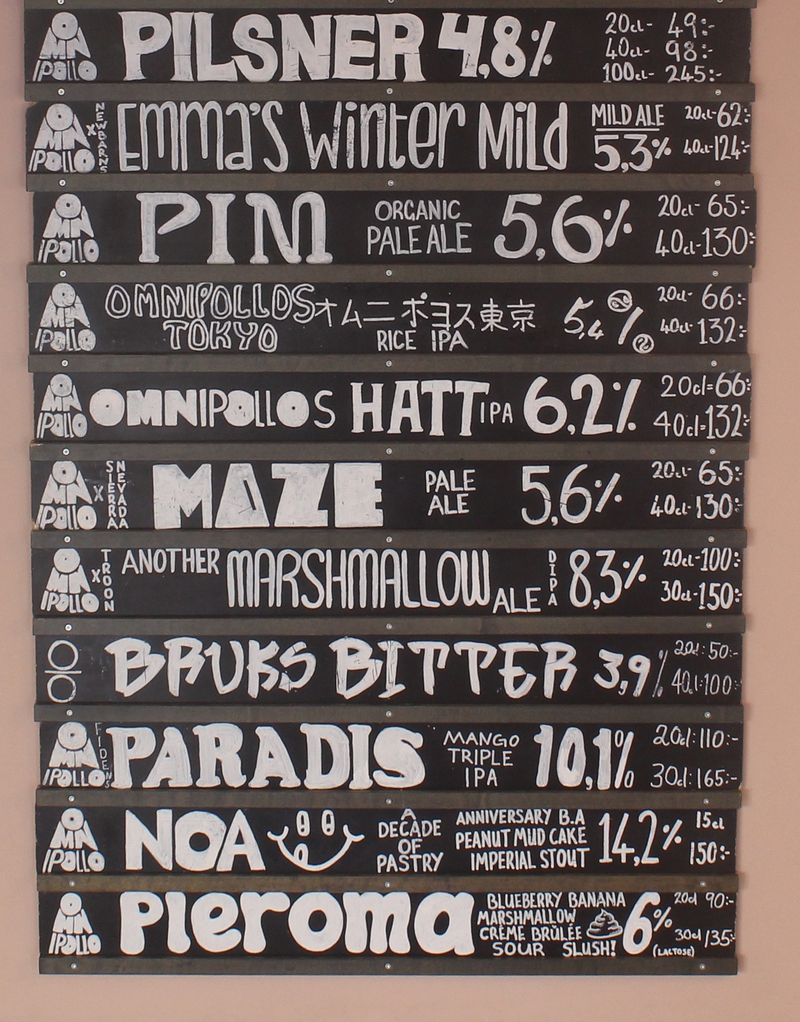 OMNIPOLLO PILSNER 4,8% 20cl- 49:-
40cl- 98:-
100cl- 245:-
OMNIPOLLO X NEWBARNS EMMA'S WINTER MILD MILD ALE 5,3% 20cl-62:-
40cl-124:-
OMNIPOLLO PIM ORGANIC PALE ALE 5,6% 20cl- 65:-
40cl-130:-
OMNIPOLLO OMNIPOLLOS TOKYO オムニポヨス東京 RICE IPA 5,4% 20cl- 66:-
40cl- 132:-
OMNIPOLLO OMNIPOLLOS HATT IPA 6,2% 20cl=66:-
40cl=132:-
OMNIPOLLO X SIERRA NEVADA MAZE PALE ALE 5,6% 20cl- 65:-
40cl- 130:-
OMNIPOLLO X TROON ANOTHER MARSHMALLOW ALE DIPA 8,3% 20cl-100:-
30cl-150:-
BRUKS BITTER 3,9% 20cl:50:-
40cl:100:-
OMNIPOLLO FIDENS PARADIS MANGO TRIPLE IPA 10,1% 20cl:110:-
30cl:165:-
OMNIPOLLO NOA A DECADE OF PASTRY ANNIVERSARY B.A PEANUT MUD CAKE IMPERIAL STOUT 14,2% 15cl
150:-
OMNIPOLLO PLEROMA BLUEBERRY BANANA MARSHMALLOW CRÈME BRÛLÉE SOUR SLUSH! 6% (LACTOSE) 20cl 90:-
30cl 135:-